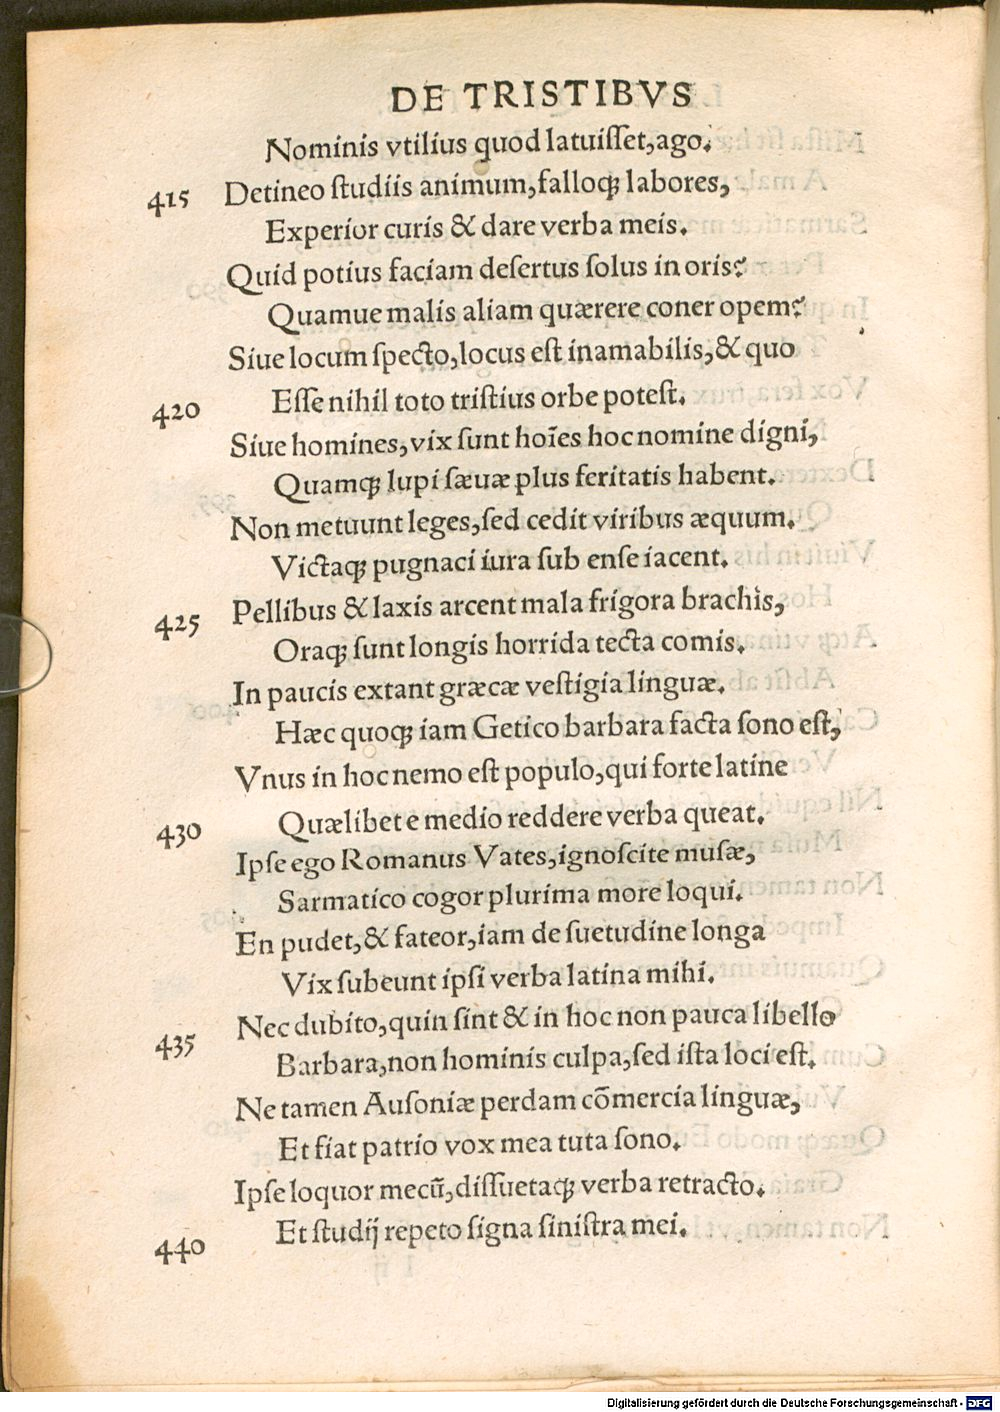 DE TRISTIBVS
Nominis vtilius quod latuiſſet,ago.
415 Detineo ſtudiis animum,falloqꝫ labores,
Experior curis & dare verba meis.
Quid potius faciam deſertus ſolus in oris?
Quamue malis aliam quærere coner opem?
Siue locum ſpecto,locus eſt inamabilis,& quo
420 Eſſe nihil toto triſtius orbe poteſt.
Siue homines,vix ſunt hoīes hoc nomine digni,
Quamqꝫ lupi ſæuæ plus feritatis habent.
Non metuunt leges,ſed cedit viribus æquum.
Victaqꝫ pugnaci iura ſub enſe iacent.
425 Pellibus & laxis arcent mala frigora brachis,
Oraqꝫ ſunt longis horrida tecta comis.
In paucis extant græcæ veſtigia linguæ.
Hæc quoqꝫ iam Getico barbara facta ſono eſt,
Vnus in hoc nemo eſt populo,qui forte latine
430 Quælibet e medio reddere verba queat.
Ipſe ego Romanus Vates,ignoſcite muſæ,
Sarmatico cogor plurima more loqui.
En pudet,& fateor,iam de ſuetudine longa
Vix ſubeunt ipſi verba latina mihi.
435 Nec dubito,quin ſint & in hoc non pauca libello
Barbara,non hominis culpa,ſed iſta loci eſt.
Ne tamen Auſoniæ perdam cōmercia linguæ,
Et fiat patrio vox mea tuta ſono.
Ipſe loquor mecū,diſſuetaqꝫ verba retracto.
440 Et ſtudij repeto ſigna ſiniſtra mei.
Digitalisierung gefördert durch die Deutsche Forschungsgemeinschaft - DFG